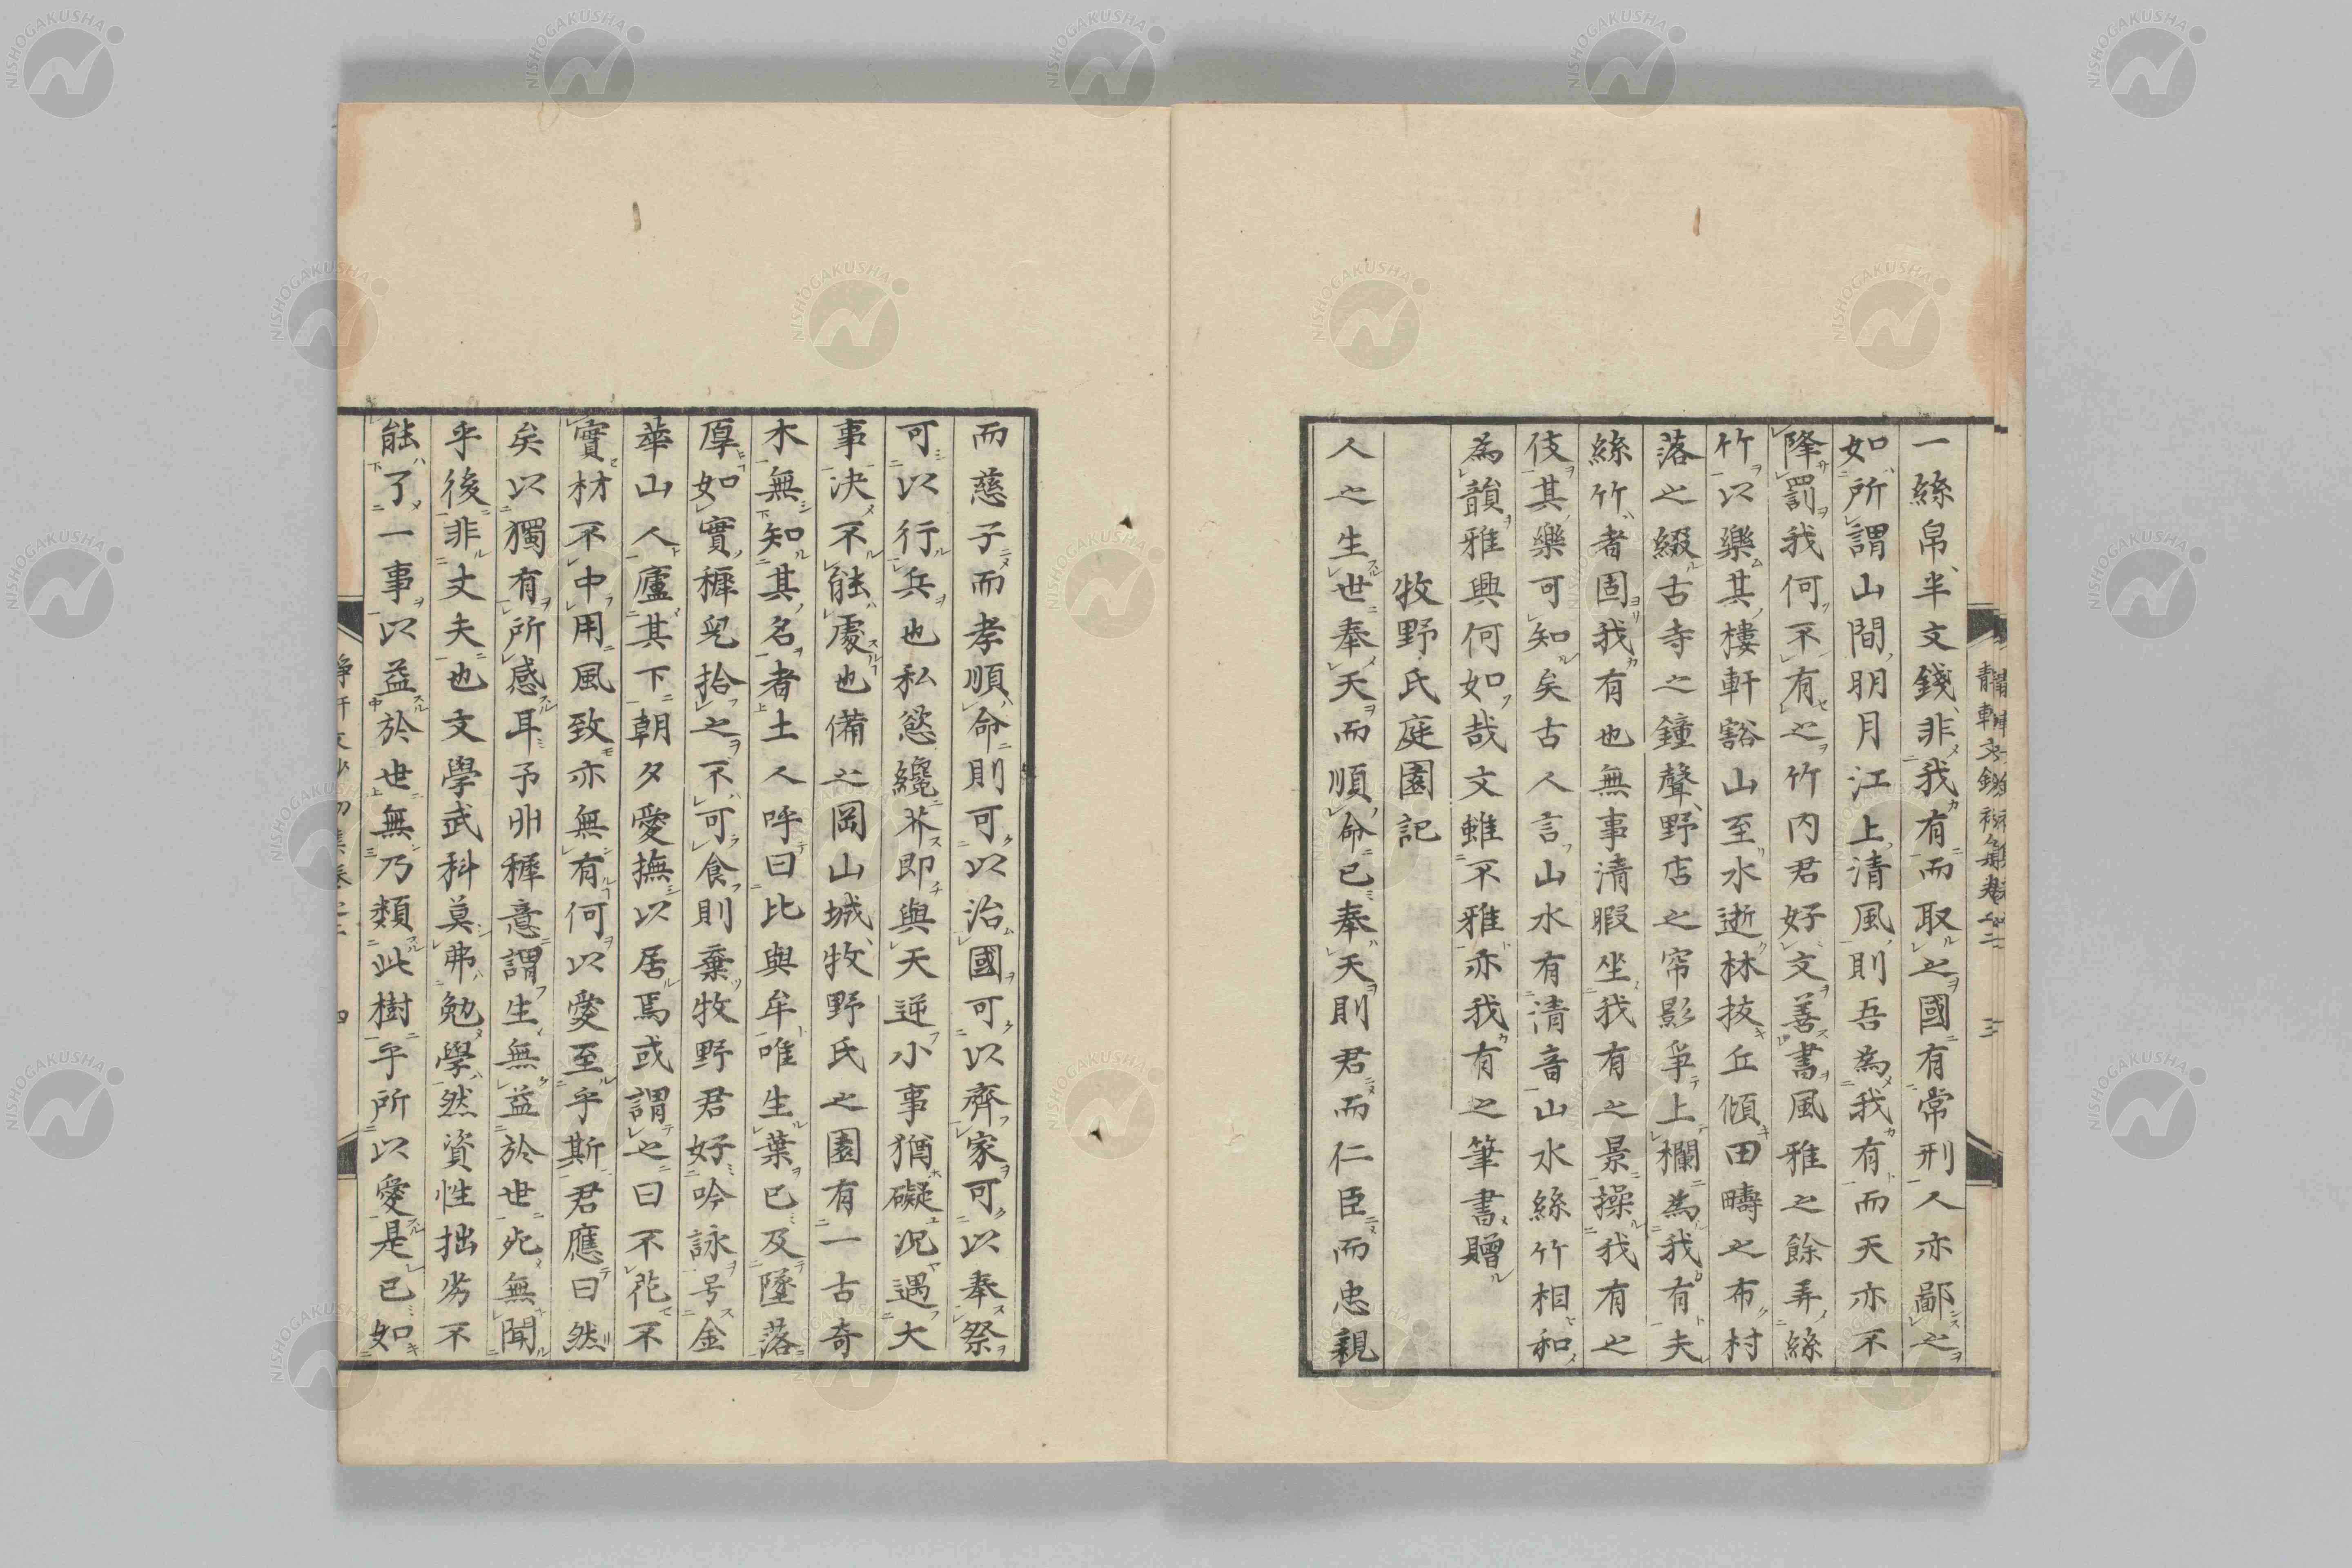 一絲帛半文錢非我有而取之國有常刑人亦鄙之
如所謂山間明月江上清風則吾為我有而天亦不
降罰我何不有之竹内君好文善書風雅之餘弄絲
竹以樂其樓軒豁山至水逝林抜丘傾田疇之布村
落之綴古寺之鐘聲野店之帘影爭上欄為我有夫
絲竹者固我有也無事清暇坐我有之景操我有之
伎其樂可知矣古人言山水有清音山水絲竹相和
為韻雅興何如哉文雖不雅亦我有之筆書贈
牧野氏庭園記
人之生世奉天而順命已奉天則君而仁臣而忠親
而慈子而孝順命則可以治國可以齊家可以奉祭
可以行兵也私慾纔芥即與天逆小事猶礙況遇大
事決不能處也備之岡山城牧野氏之園有一古奇
木無知其名者土人呼曰比與牟唯生葉已及墜落
厚如實稺兒拾之不可食則棄牧野君好吟詠号金
華山人廬其下朝夕愛撫以居焉或謂之曰不花不
實材不中用風致亦無有何以愛至乎斯君應曰然
矣以獨有所感耳予丱稺意謂生無益於世死無聞
乎後非丈夫也文學武科莫弗勉學然資性拙劣不
能了一事以益於世無乃類此樹乎所以愛是已如